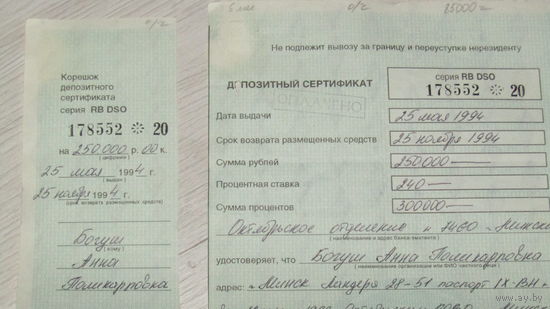 о/г
Корешок
депозитного
сертификата
серия RB DSO
178552 ※ 20
на 250.000 р. 00 к.
(цифрами)
25 мая 1994 г.
(выдан)
25 ноября 1994 г.
(срок возврата размещенных средств)
Богуш
(кому)
Анна
Поликарповна
5 о/г 25000
Не подлежит вывозу за границу и переуступке нерезиденту
ДЕПОЗИТНЫЙ СЕРТИФИКАТ
серия RB DSO
178552 ※ 20
Дата выдачи 25 мая 1994
Срок возврата размещенных средств 25 ноября 1994
Сумма рублей 250000
Процентная ставка 240
Сумма процентов 300000
Октябрьское отделение Минск
(наименование и адрес банка-эмитента)
удостоверяет, что Богуш Анна Поликарповна
(наименование организации или ФИО частного лица)
адрес: Минск 28-51 паспорт IX-ВН
ay.by